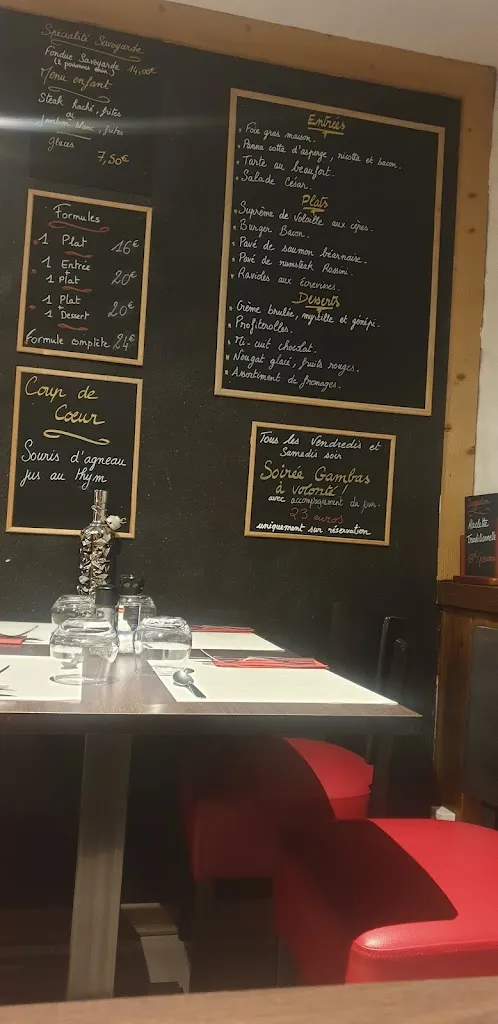 Spécialité Savoyarde
Fondue Savoyarde 14,00€
(2 personnes min)
Menu enfant
Steak haché, frites
ou
Jambon blanc, frites
Glaces
7,50€
Formules
1 Plat 16€
1 Entrée
+
1 Plat 20€
1 Plat
+
1 Dessert 20€
Formule complète 24€
Coup de
Coeur
Souris d'agneau
jus au thym
Entrées
Foie gras maison.
Panna cotta d'asperge, ricotta et bacon.
Tarte au beaufort.
Salade César.
Plats
Suprême de volaille aux cèpes.
Burger Bacon.
Pavé de saumon béarnaise.
Pavé de rumsteak Rossini.
Ravioles aux Ecrevisses.
Desserts
Crème brulée, myrtille et génépi.
Profiterolles.
Mi-cuit chocolat.
Nougat glacé, fruits rouges.
Assortiment de fromages.
Tous les Vendredis et
Samedis soir
Soirée Gambas
à volonté !
avec accompagnement du jour.
23 euros
uniquement sur réservation
Raclette
Traditionnelle